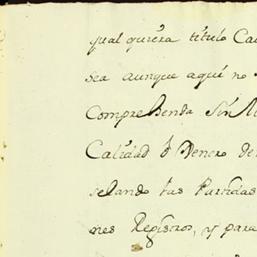 qualquiera titulo Ca
sea aunque aqui no
Comprehenda Sin
Calidad ò Genero de
selando las Partidas
nes Registros, y para